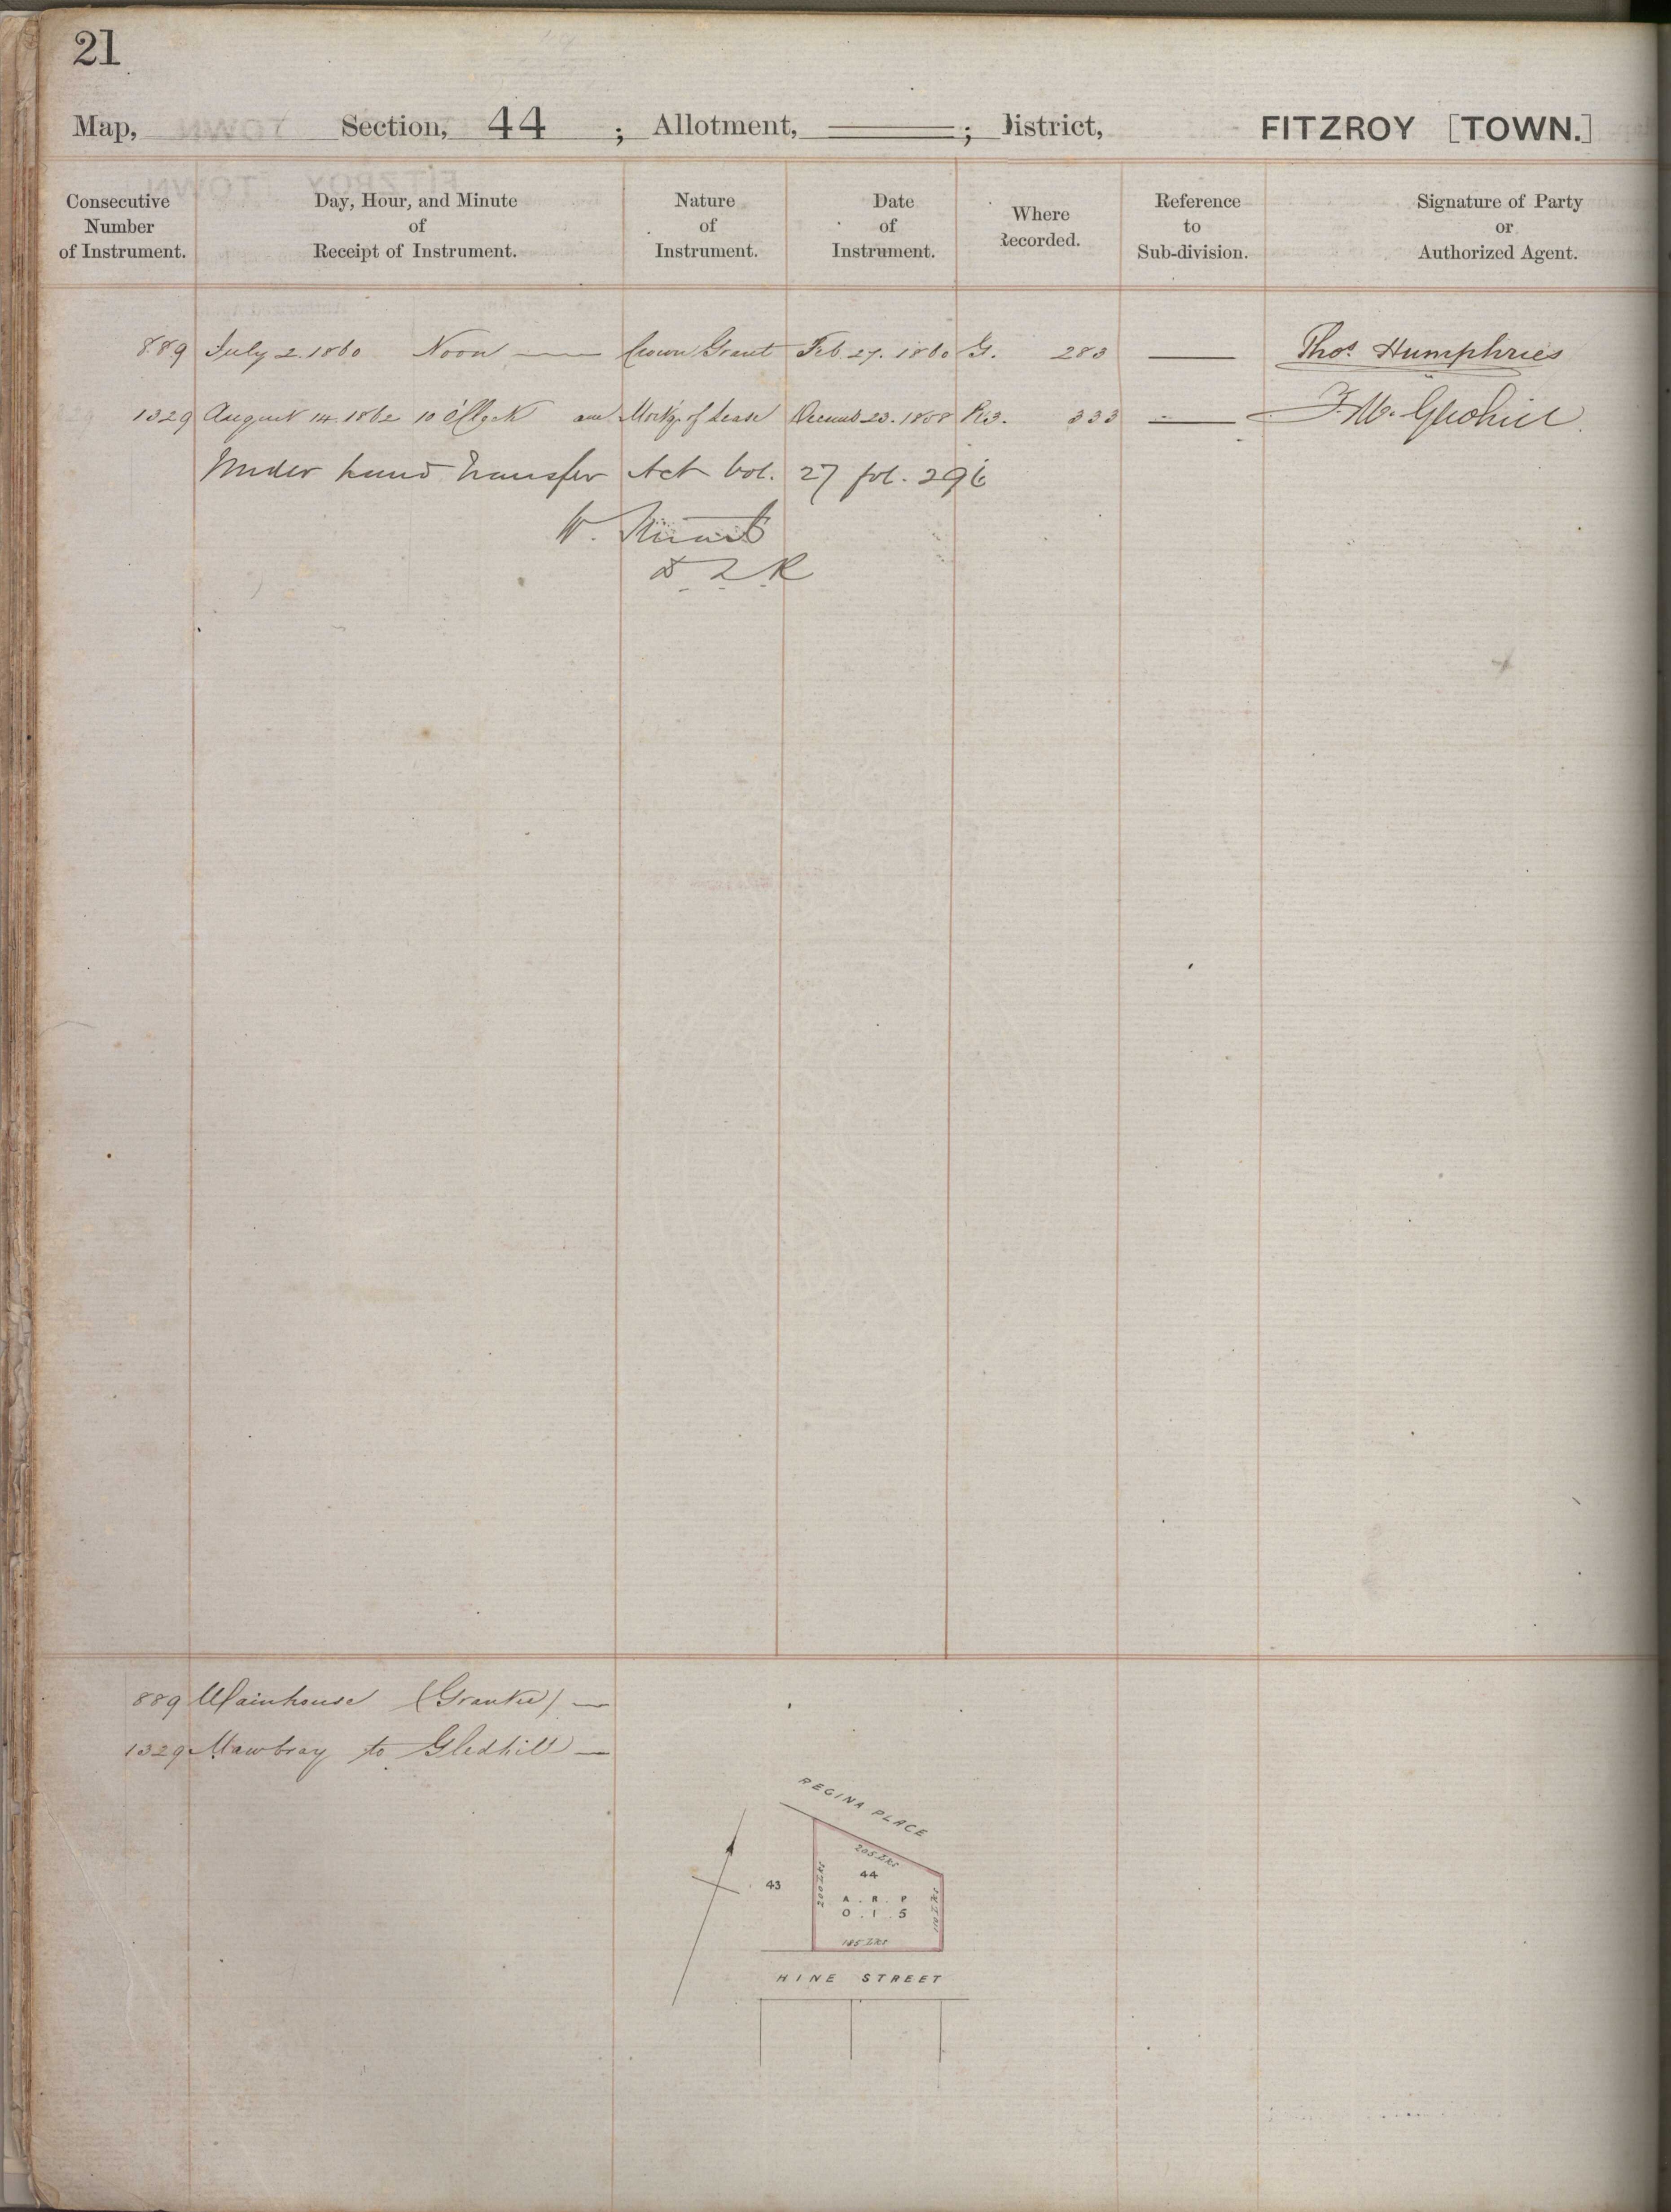 21
Map, Section, 44 ; Allotment, ; District, FITZROY [TOWN.]
Consecutive Number of Instrument.
Day, Hour, and Minute of Receipt of Instrument.
Nature of Instrument.
Date of Instrument.
Where Recorded.
Reference to Sub-division.
Signature of Party or Authorized Agent.
889 July 2. 1860 Noon — Crown Grant Feb. 27. 1860 G. 283 — Thos. Humphries
1329 August 14. 1862 10 o'Clock am Mortg. of Lease Decemb 23. 1858 333 —
Under Land Transfer Act Vol. 27 fol. 296
W. Stuart
D L R
889 Mainhouse (Grantee) —
1329 Mawbray to Gledhill —
REGINA PLACE
205 Lks
44
43
200 Lks
A . R . P
0 . 1 . 5
110 Lks
185 Lks
HINE STREET